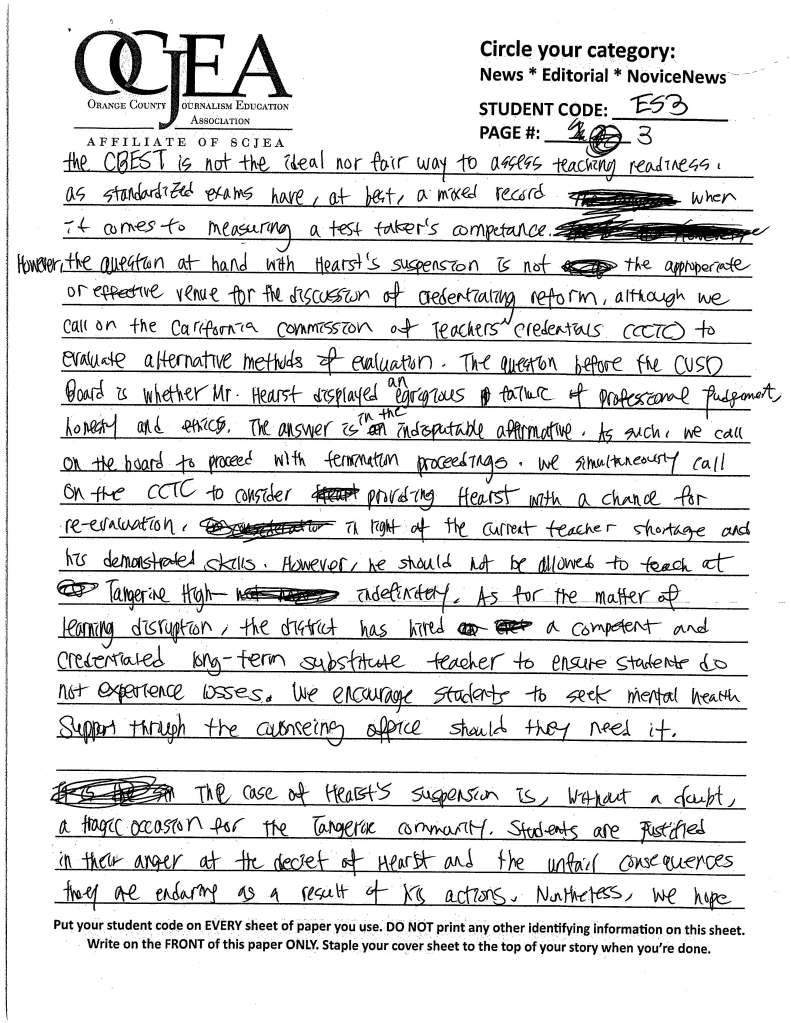 OCJEA
ORANGE COUNTY JOURNALISM EDUCATION
ASSOCIATION
AFFILIATE OF SCJEA
Circle your category:
News * Editorial * NoviceNews
STUDENT CODE: ES3
PAGE #: 3
the CBEST is not the ideal nor fair way to assess teaching readiness.
as standardized exams have, at best, a mixed record when
it comes to measuring a test taker's competance.
However, the question at hand with Hearst's suspension is not the approperiate
or effective venue for the discussion of credentialing reform, although we
call on the California Commission of Teachers' Credentials (CCTC) to
evaluate alternative methods of evaluation. The question before the CUSD
Board is whether Mr. Hearst displayed an egregious failure of professional judgement,
honesty and ethics. The answer is in the indisputable affirmative. As such, we call
on the board to proceed with termination proceedings. We simultaneously call
on the CCTC to consider providing Hearst with a chance for
re-evaluation, in light of the current teacher shortage and
his demonstrated skills. However, he should not be allowed to teach at
Tangerine High indefinitely. As for the matter of
learning disruption, the district has hired a competent and
credentialed long-term substitute teacher to ensure students do
not experience losses. We encourage students to seek mental health
support through the counseling office should they need it.
The case of Hearst's suspension is, without a doubt,
a tragic occasion for the Tangerine community. Students are justified
in their anger at the deciet of Hearst and the unfair consequences
they are enduring as a result of his actions. Nontheless, we hope
Put your student code on EVERY sheet of paper you use. DO NOT print any other identifying information on this sheet.
Write on the FRONT of this paper ONLY. Staple your cover sheet to the top of your story when you're done.